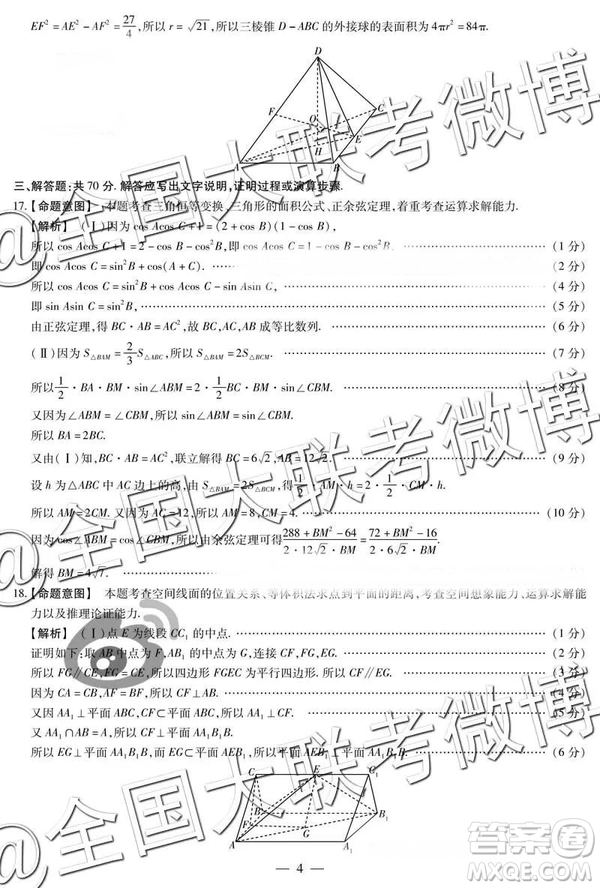 EF²=AE²-AF²=27/4,所以 r=√21,所以三棱锥 D-ABC 的外接球的表面积为 4πr²=84π.
D
F
O
C
E
A
H
B
三、解答题:共 70 分. 解答应写出文字说明,证明过程或演算步骤.
17.【命题意图】 本题考查三角恒等变换、三角形的面积公式、正余弦定理,着重考查运算求解能力.
【解析】 (Ⅰ)因为 cos Acos C+1=(2+cos B)(1-cos B),
所以 cos Acos C+1=2-cos B-cos²B,即 cos Acos C=1-cos B-cos²B, (1 分)
即 cos Acos C=sin²B+cos(A+C). (2 分)
所以 cos Acos C=sin²B+cos Acos C-sin Asin C, (4 分)
即 sin Asin C=sin²B, (5 分)
由正弦定理,得 BC·AB=AC²,故 BC,AC,AB 成等比数列. (6 分)
(Ⅱ)因为 S△BAM=2/3 S△ABC,所以 S△BAM=2S△BCM. (7 分)
所以 1/2·BA·BM·sin∠ABM=2·1/2·BC·BM·sin∠CBM. (8 分)
又因为∠ABM=∠CBM,所以 sin∠ABM=sin∠CBM.
所以 BA=2BC.
又由(Ⅰ)知,BC·AB=AC²,联立解得 BC=6√2,BA=12√2. (9 分)
设 h 为△ABC 中 AC 边上的高,由 S△BAM=2S△BCM,得 1/2·AM·h=2·1/2·CM·h.
所以 AM=2CM. 又因为 AC=12,所以 AM=8,CM=4. (10 分)
因为 cos∠ABM=cos∠CBM,所以由余弦定理可得 (288+BM²-64)/(2·12√2·BM)=(72+BM²-16)/(2·6√2·BM).
解得 BM=4√7.
18.【命题意图】 本题考查空间线面的位置关系、等体积法求点到平面的距离,考查空间想象能力、运算求解能
力以及推理论证能力.
【解析】 (Ⅰ)点 E 为线段 CC₁ 的中点. (1 分)
证明如下:取 AB 中点为 F,AB₁ 的中点为 G,连接 CF,FG,EG. (2 分)
所以 FG∥CE,FG=CE,所以四边形 FGEC 为平行四边形. 所以 CF∥EG. (3 分)
因为 CA=CB,AF=BF,所以 CF⊥AB. (4 分)
又因 AA₁⊥平面 ABC,CF⊂平面 ABC,所以 CF⊥AA₁. (5 分)
又 AA₁∩AB=A,所以 CF⊥平面 AA₁B₁B. (6 分)
所以 EG⊥平面 AA₁B₁B,而 EG⊂平面 AEB₁,所以平面 AEB₁⊥平面 AA₁B₁B.
C
E
C₁
B
B₁
F
G
A
A₁
— 4 —
@全国大联考微博
@全国大联考微博
@全国大联考微博
答案圈
MXQE.COM